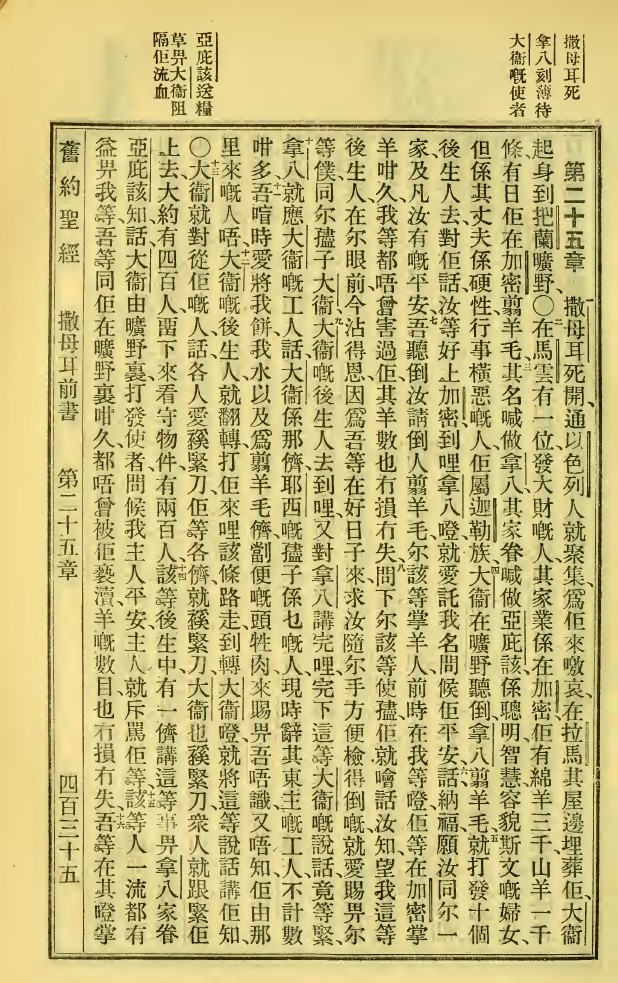 撒母耳死
拿八刻薄待
大衞嘅使者
亞庇該送糧
草畀大衞阻
隔佢流血
第二十五章 撒母耳死開通以色列人就聚集爲佢來噭哀在拉馬其屋邊埋葬佢大衞
起身到把蘭曠野〇二在馬雲有一位發大財嘅人其家業係在加密佢有綿羊三千山羊一千
條有日佢在加密翦羊毛三其名喊做拿八其家眷喊做亞庇該係聰明智慧容貌斯文嘅婦女
但係其丈夫係硬性行事橫惡嘅人佢屬迦勒族四大衞在曠野聽倒拿八翦羊毛五就打發十個
後生人去對佢話汝等好上加密到哩拿八嶝就愛託我名問候佢平安六話納福願汝同尔一
家及凡汝有嘅平安七吾聽倒汝請倒人翦羊毛尔該等掌羊人前時在我等嶝佢等在加密掌
羊咁久我等都唔曾害過佢其羊數也冇損冇失八問下尔該等使孻佢就噲話汝知望我這等
後生人在尔眼前今沾得恩因爲吾等在好日子來求汝隨尔手方便檢得倒嘅就愛賜畀尔
等僕同尔孻子大衞九大衞嘅後生人去到哩又對拿八講完哩完下這等大衞嘅說話竟等緊
十拿八就應大衞嘅工人話大衞係那儕耶西嘅孻子係乜嘅人現時辭其東主嘅工人不計數
咁多十一吾喑時愛將我餅我水以及爲翦羊毛儕劏便嘅頭牲肉來賜畀吾唔識又唔知佢由那
里來嘅人唔十二大衞嘅後生人就翻轉打佢來哩該條路走到轉大衞嶝就將這等說話講佢知
〇十三大衞就對從佢嘅人話各人愛繇緊刀佢等各儕就繇緊刀大衞也繇緊刀衆人就跟緊佢
上去大約有四百人畱下來看守物件有兩百人十四該等後生中有一儕講這等事畀拿八家眷
亞庇該知話大衞由曠野裏打發使者問候我主人平安主人就斥罵佢等十五該等人一流都有
益畀我等吾等同佢在曠野裏咁久都唔曾被佢褻瀆羊嘅數目也冇損冇失十六吾等在其嶝掌
舊約聖經 撒母耳前書 第二十五章 四百三十五